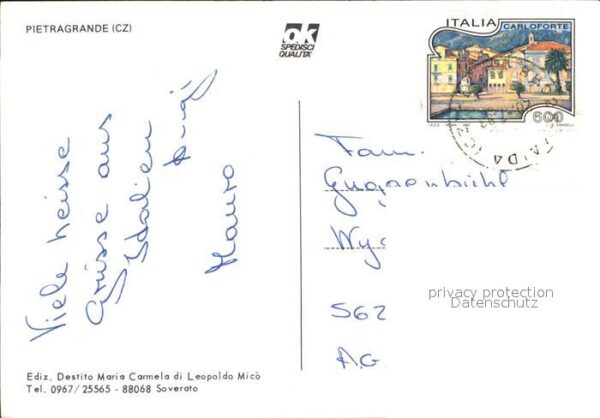 PIETRAGRANDE (CZ)
ok
SPEDISCI
QUALITA'
ITALIA
CARLOFORTE
600
Viele heisse
Grüsse aus
Italien
Mauro
Fam.
Guggenbühl
Wy
562
A.G.
privacy protection
Datenschutz
Ediz. Destito Maria Carmela di Leopoldo Micò
Tel. 0967/25565 - 88068 Soverato